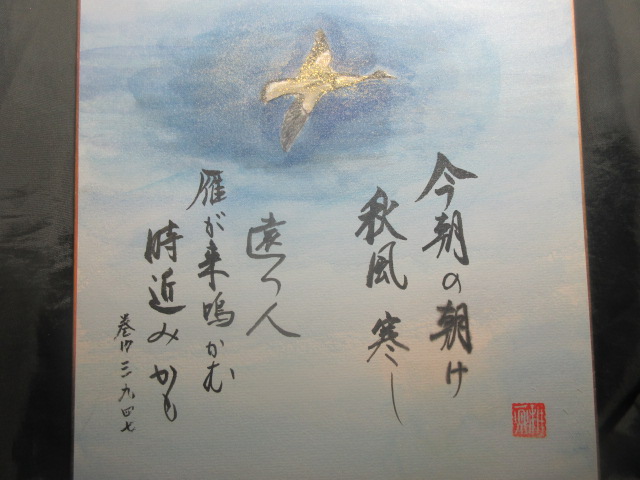 今朝の朝け
秋風寒し
遠つ人
雁が来鳴かむ
時近みかも
巻17 三九四七